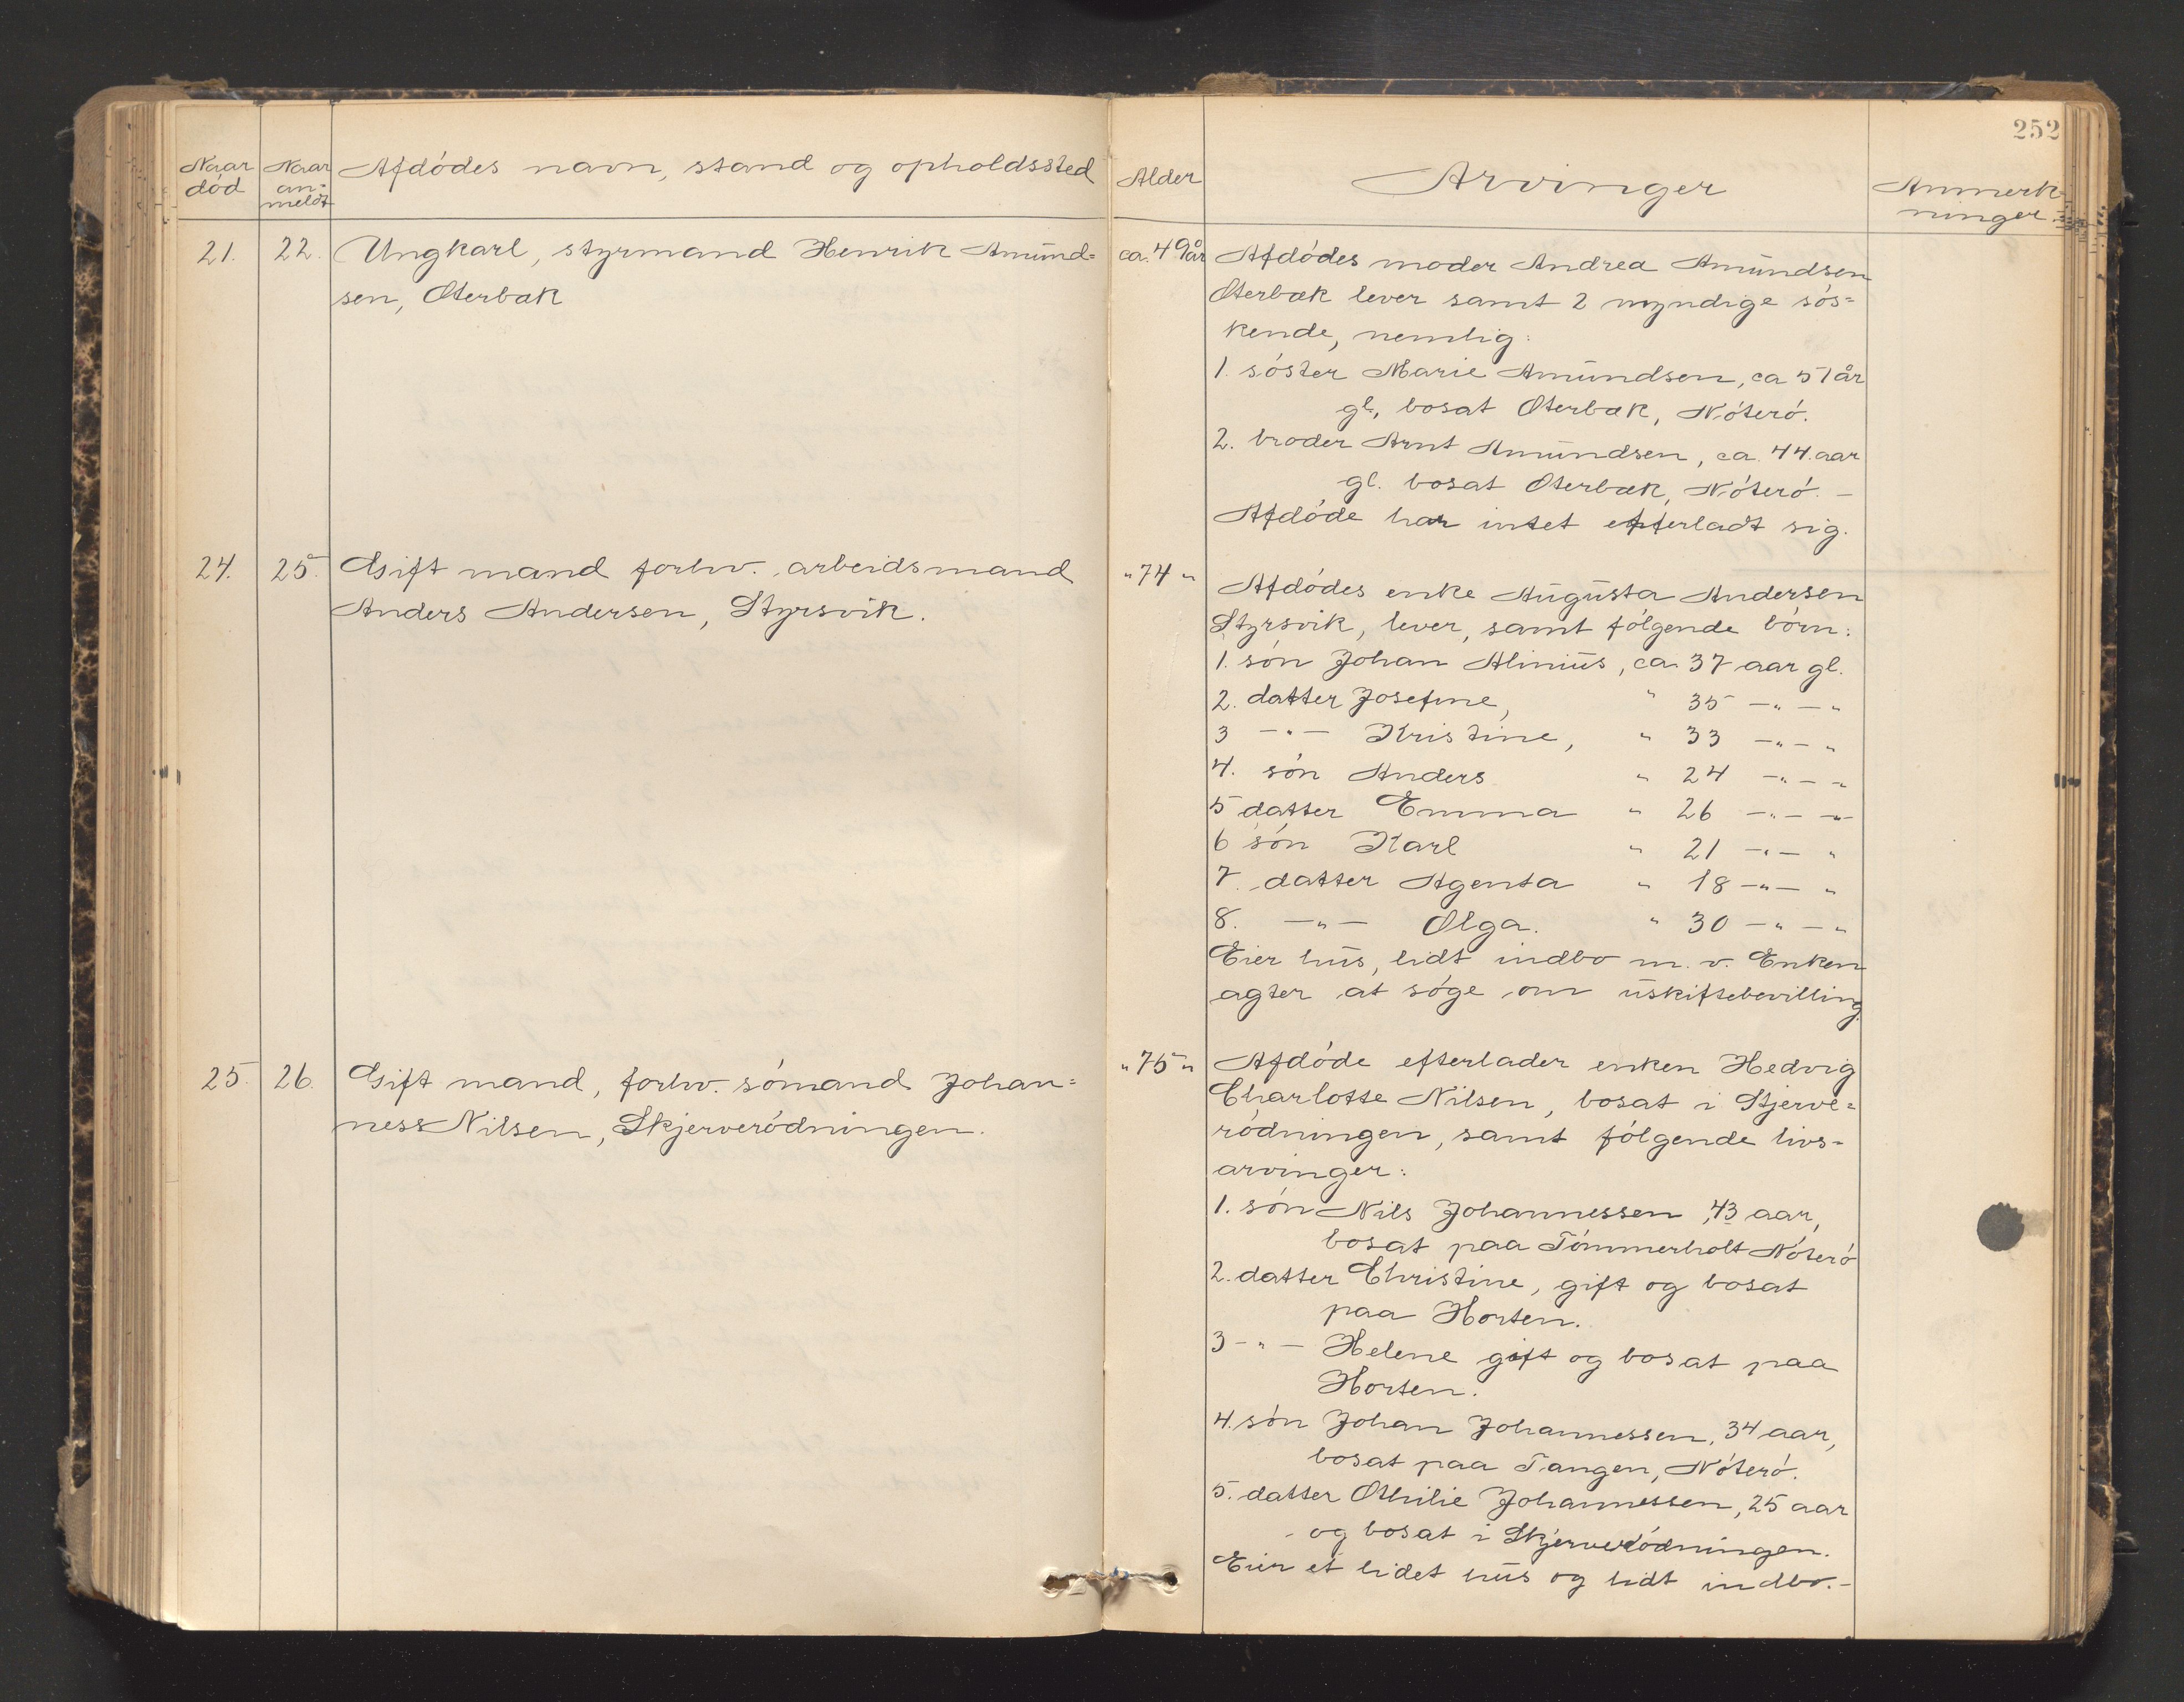 252
Naar død
Naar an-
meldt
Afdódes navn, stand og opholdssted
Alder
Arvinger
Anmerk-
ninger
21.
22.
Ungkarl, styrmand Henrik Amund=
sen, Oterbæk
ca. 49 år
Afdódes moder Andrea Amundsen
Oterbæk lever samt 2 myndige sós=
kende, nemlig:
1. sóster Marie Amundsen, ca 51 år
gl., bosat Oterbæk, Nóteró.
2. broder Arnt Amundsen, ca. 44. aar
gl. bosat Oterbæk, Nóteró. -
Afdóde har intet efterladt sig.
24.
25.
Gift mand forhv. arbeidsmand
Anders Andersen, Styrsvik.
" 74 "
Afdódes enke Augusta Andersen
Styrsvik, lever, samt fólgende bórn:
1. són Johan Alinius, ca 37 aar gl.
2. datter Josefine, " 35 -"- "
3 -"- Kristine, " 33 -"- "
4. són Anders " 24 -"- "
5 datter Emma " 26 -"- "
6 són Karl " 21 -"- "
7. datter Agenta " 18 -"- "
8. -"- Olga. " 30 -"- "
Eier hus, lidt indbo m. v. Enken
agter at sóge om uskiftebevilling.
25.
26.
Gift mand, forhv. sómand Johan=
ness Nilsen, Skjerveródningen.
" 75 "
Afdóde efterlader enken Hedvig
Charlotte Nilsen, bosat i Skjerve=
ródningen, samt fólgende livs-
arvinger:
1. són Nils Johannessen, 43 aar,
bosat paa Tómmerholt Nóteró
2. datter Christine, gift og bosat
paa Horten.
3 -"- Helene gift og bosat paa
Horten.
4. són Johan Johannessen, 34 aar,
bosat paa Tangen, Nóteró.
5. datter Othilie Johannessen, 25 aar
og bosat i Skjerveródningen.
Eier et lidet hus og lidt indbo. -